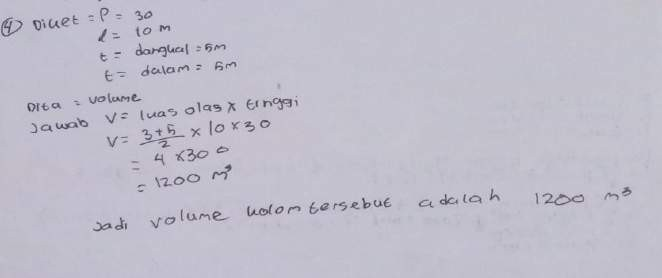 ④ Diket = P = 30
l = 10 m
t = dangual = 5m
t = dalam = 5m
Dita = volume
Jawab V = luas alas x tinggi
V = 3+5/2 x 10 x 30
= 4 x 300
= 1200 m³
Jadi volume kolom tersebut adalah 1200 m³